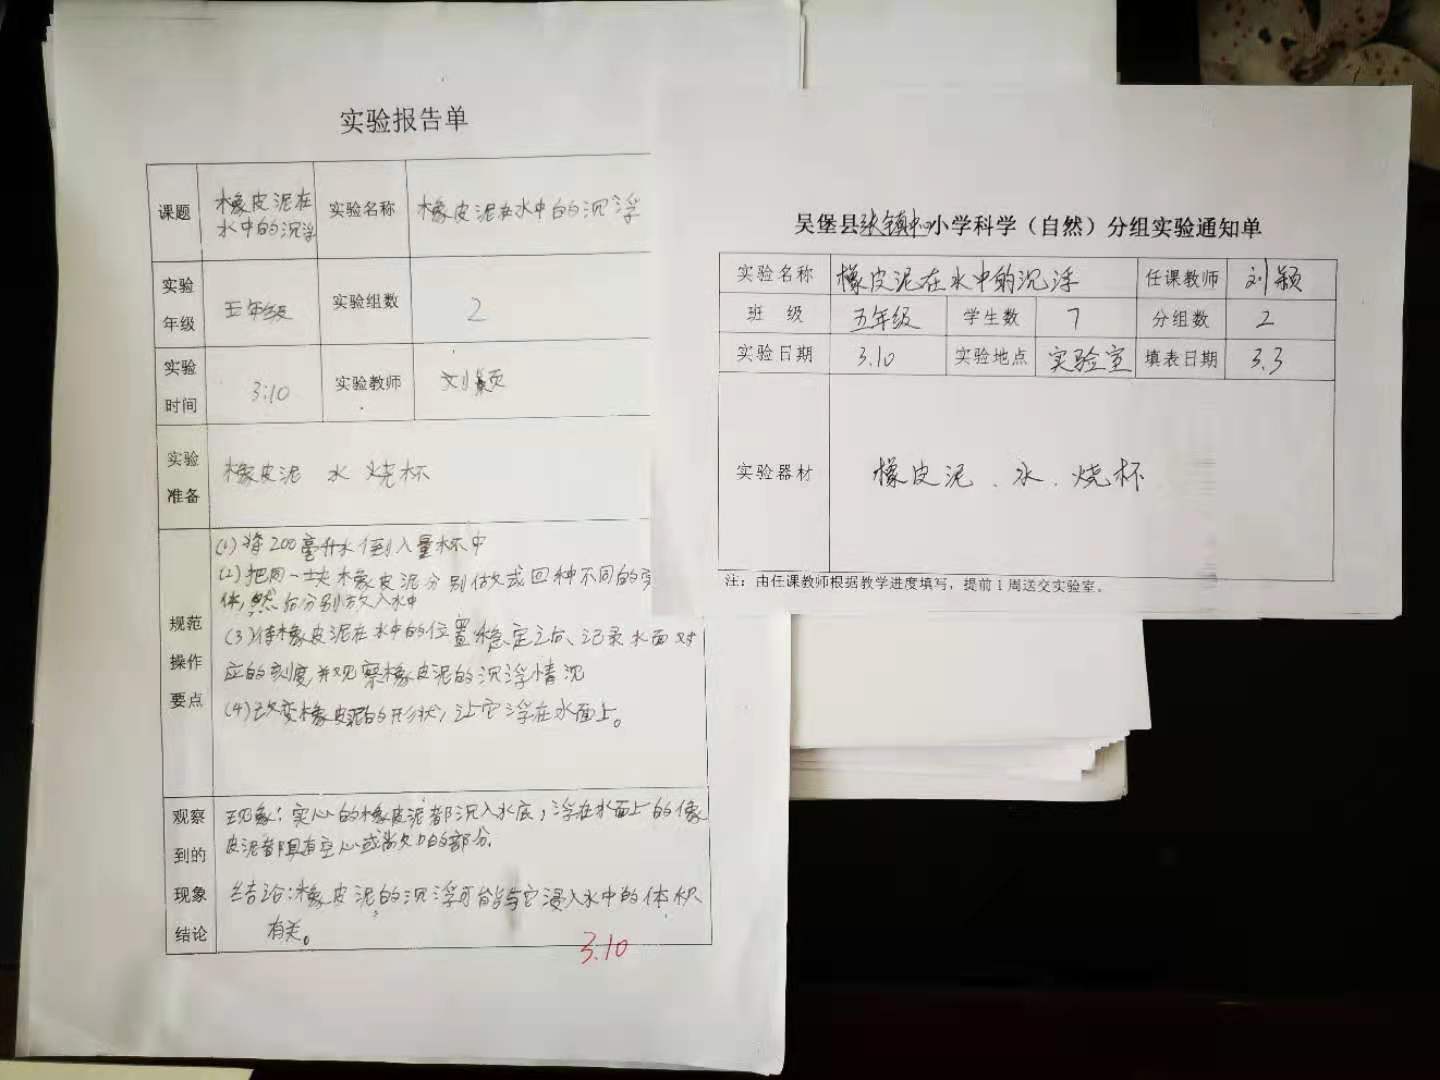 实验报告单
课题 橡皮泥在 实验名称 橡皮泥在水中的沉浮
水中的沉浮
实验 五年级 实验组数 2
年级
实验 3:10 实验教师 刘颖
时间
实验 橡皮泥 水 烧杯
准备
(1)将200毫升水倒入量杯中
(2)把同一块橡皮泥分别做成四种不同的
体,然后分别放入水中
规范 (3)待橡皮泥在水中的位置稳定之后、记录水面对
操作 应的刻度,并观察橡皮泥的沉浮情况
要点 (4)改变橡皮泥的形状,让它浮在水面上。
观察 现象:实心的橡皮泥都沉入水底,浮在水面上的像
到的 皮泥都具有空心或 的部分.
现象 结论:橡皮泥的沉浮可能与它浸入水中的体积
结论 有关。
3.10
吴堡县张 镇中心小学科学(自然)分组实验通知单
实验名称 橡皮泥在水中的沉浮 任课教师 刘颖
班 级 五年级 学生数 7 分组数 2
实验日期 3.10 实验地点 实验室 填表日期 3.3
实验器材 橡皮泥、水、烧杯
注:由任课教师根据教学进度填写,提前1周送交实验室。